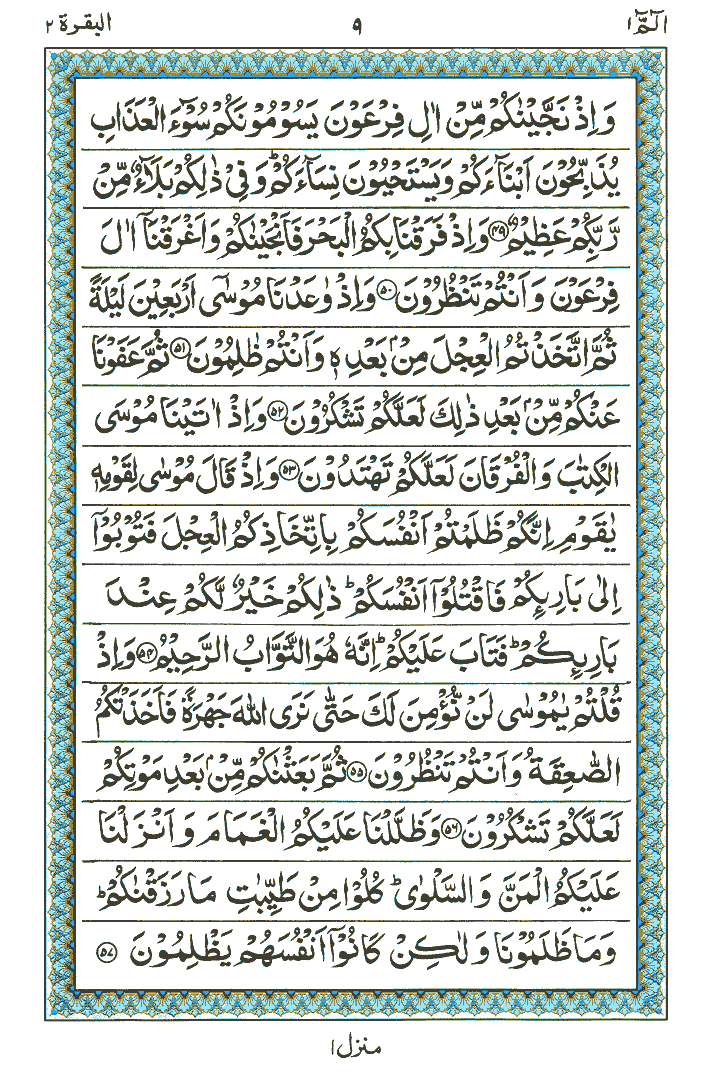 الٓمّٓ ١ ٩ البقرة ٢
وَاِذْ نَجَّيْنٰكُمْ مِّنْ اٰلِ فِرْعَوْنَ يَسُوْمُوْنَكُمْ سُوْٓءَ الْعَذَابِ
يُذَبِّحُوْنَ اَبْنَآءَكُمْ وَيَسْتَحْيُوْنَ نِسَآءَكُمْ ؕ وَفِيْ ذٰلِكُمْ بَلَآءٌ مِّنْ
رَّبِّكُمْ عَظِيْمٌ ﴿۴۹﴾ وَاِذْ فَرَقْنَا بِكُمُ الْبَحْرَ فَاَنْجَيْنٰكُمْ وَاَغْرَقْنَآ اٰلَ
فِرْعَوْنَ وَاَنْتُمْ تَنْظُرُوْنَ ﴿۵۰﴾ وَاِذْ وٰعَدْنَا مُوْسٰٓى اَرْبَعِيْنَ لَيْلَةً
ثُمَّ اتَّخَذْتُمُ الْعِجْلَ مِنْۢ بَعْدِهٖ وَاَنْتُمْ ظٰلِمُوْنَ ﴿۵۱﴾ ثُمَّ عَفَوْنَا
عَنْكُمْ مِّنْۢ بَعْدِ ذٰلِكَ لَعَلَّكُمْ تَشْكُرُوْنَ ﴿۵۲﴾ وَاِذْ اٰتَيْنَا مُوْسَى
الْكِتٰبَ وَالْفُرْقَانَ لَعَلَّكُمْ تَهْتَدُوْنَ ﴿۵۳﴾ وَاِذْ قَالَ مُوْسٰى لِقَوْمِهٖ
يٰقَوْمِ اِنَّكُمْ ظَلَمْتُمْ اَنْفُسَكُمْ بِاتِّخَاذِكُمُ الْعِجْلَ فَتُوْبُوْٓا
اِلٰى بَارِىِٕكُمْ فَاقْتُلُوْٓا اَنْفُسَكُمْ ؕ ذٰلِكُمْ خَيْرٌ لَّكُمْ عِنْدَ
بَارِىِٕكُمْ ؕ فَتَابَ عَلَيْكُمْ ؕ اِنَّهٗ هُوَ التَّوَّابُ الرَّحِيْمُ ﴿۵۴﴾ وَاِذْ
قُلْتُمْ يٰمُوْسٰى لَنْ نُّؤْمِنَ لَكَ حَتّٰى نَرَى اللّٰهَ جَهْرَةً فَاَخَذَتْكُمُ
الصّٰعِقَةُ وَاَنْتُمْ تَنْظُرُوْنَ ﴿۵۵﴾ ثُمَّ بَعَثْنٰكُمْ مِّنْۢ بَعْدِ مَوْتِكُمْ
لَعَلَّكُمْ تَشْكُرُوْنَ ﴿۵۶﴾ وَظَلَّلْنَا عَلَيْكُمُ الْغَمَامَ وَاَنْزَلْنَا
عَلَيْكُمُ الْمَنَّ وَالسَّلْوٰى ؕ كُلُوْا مِنْ طَيِّبٰتِ مَا رَزَقْنٰكُمْ ؕ
وَمَا ظَلَمُوْنَا وَلٰكِنْ كَانُوْٓا اَنْفُسَهُمْ يَظْلِمُوْنَ ﴿۵۷﴾
منزل ١